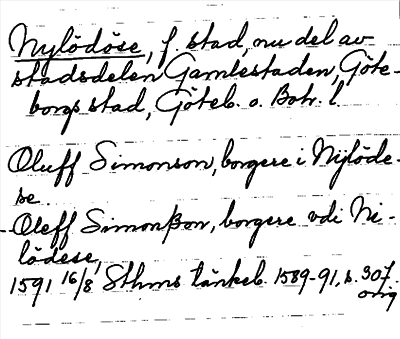 Nylödöse, f. stad, nu del av
stadsdelen Gamlestaden, Göte-
borgs stad, Göteb. o. Boh. l.
Oluff Simonson, borgere i Nylöde-
se.
-Oleff Simonßon, borgere vdi Ni-
lödese,
1591 16/8 Sthms tänkeb. 1589-91, s. 307.
orig